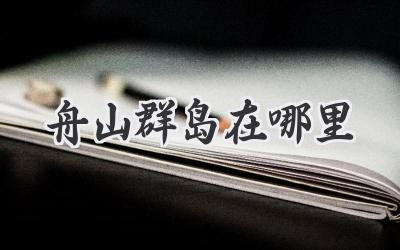 舟山群岛在哪里